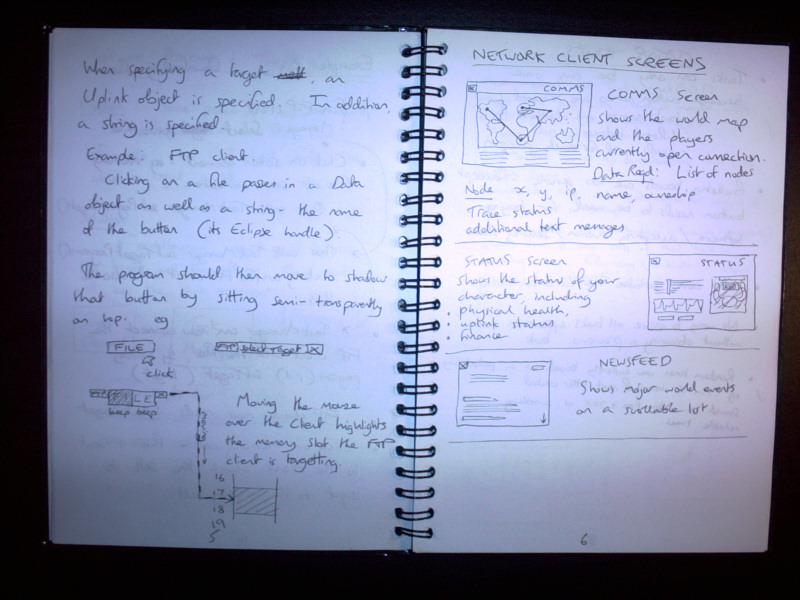 When specifying a target, an
Uplink object is specified. In addition,
a string is specified.
Example: FTP client
Clicking on a file passes in a Data
object as well as a string - the name
of the button (its Eclipse handle)
The program should then move to shadow
that button by sitting semi-transparently
on top. eg
FILE
FTP Select Target X
click
LE
beep beep
Moving the mouse
over the Client highlights
the memory slot the FTP
client is targetting.
16
17
18
19
5
NETWORK CLIENT SCREENS
COMMS
COMMS Screen
shows the world map
and the players
currently open connection.
Data Reqd: List of nodes
Node x, y, ip, name, ownership
Trace status
additional text messages
STATUS Screen
shows the status of your
character, including
• physical health,
• uplink status
• finance
STATUS
NEWSFEED
Shows major world events
on a scrollable list
6